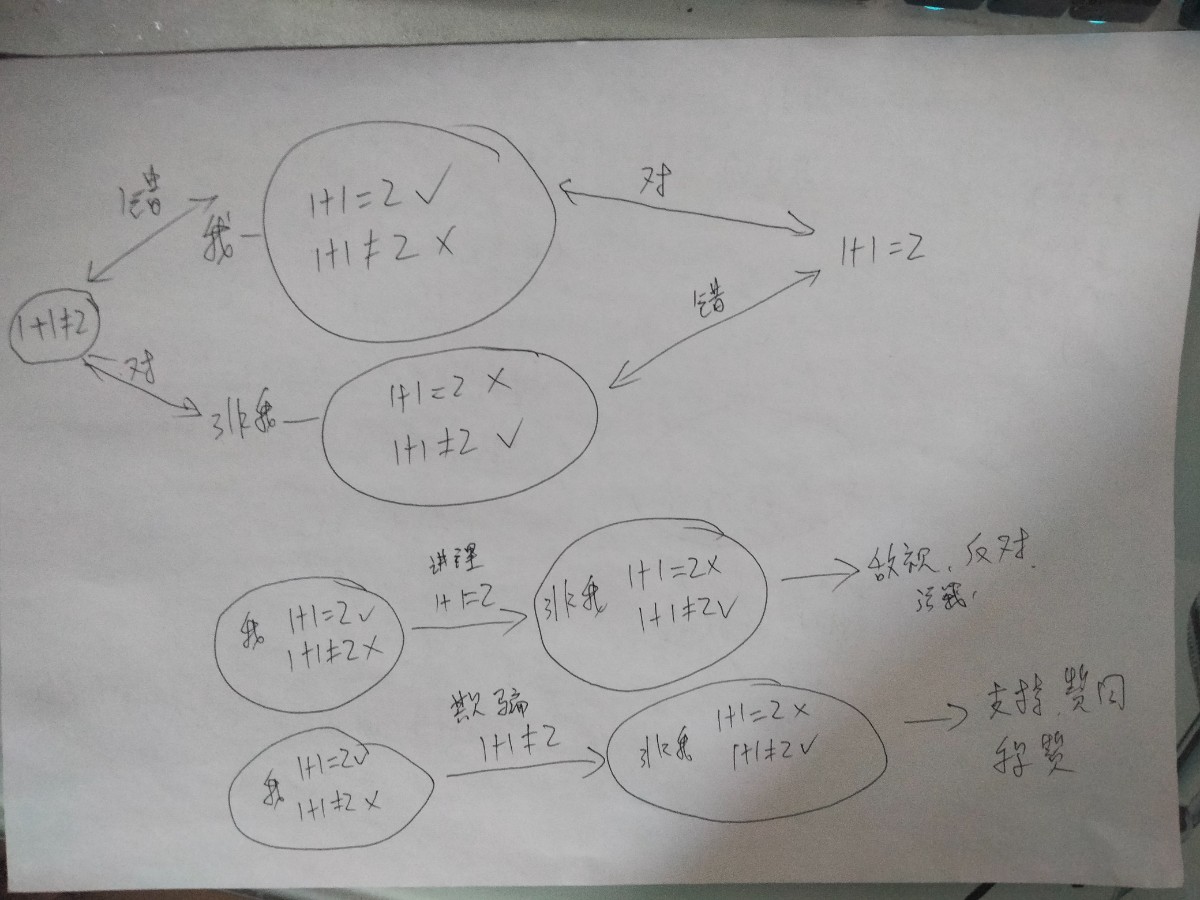 错
对
1+1=2 ✓
我
1+1≠2 ×
1+1=2
错
1+1≠2
对
1+1=2 ×
非我
1+1≠2 ✓
讲理
1+1=2
我
1+1=2 ✓
1+1≠2 ×
非我
1+1=2 ×
1+1≠2 ✓
敌视、反对、
欺骗
1+1≠2
我
1+1=2 ✓
1+1≠2 ×
非我
1+1=2 ×
1+1≠2 ✓
支持、赞同
称赞